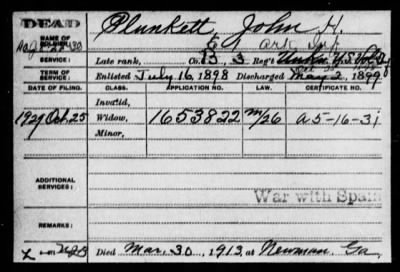 DEAD
NAME OF SOLDIER: Plunkett, John H.
SERVICE: Late rank, Co. B, 3 Reg't U.S. Vol
TERM OF SERVICE: Enlisted July 16, 1898 Discharged May 2, 1899
DATE OF FILING. CLASS. APPLICATION NO. LAW. CERTIFICATE NO.
Invalid,
1929 Oct. 25 Widow, 1653822 m/26 A5-16-31
Minor,
ADDITIONAL SERVICES:
War with Spain
REMARKS:
Died Mar. 30, 1913, at Newnan, Ga